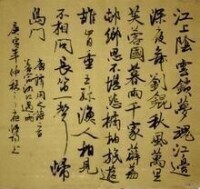 江上陰雲鎖夢魂江邊
深夜舞劉琨秋風萬里
芙蓉國暮雨千家薜荔
村鄉思不堪悲橘柚旅遊
誰肯重王孫漁人相見
不相問長笛一聲歸
島門